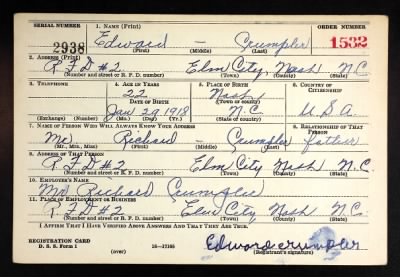 SERIAL NUMBER 1. NAME (Print) ORDER NUMBER
2938 Edward — Crumpler 1532
(First) (Middle) (Last)
2. ADDRESS (Print)
R.F.D #2 Elm City Nash N.C
(Number and street or R. F. D. number) (Town) (County) (State)
3. TELEPHONE 4. AGE IN YEARS 5. PLACE OF BIRTH 6. COUNTRY OF CITIZENSHIP
22 Nash
DATE OF BIRTH (Town or county)
Jan 29 1918 N.C. U.S.A.
(Exchange) (Number) (Mo.) (Day) (Yr.) (State or country)
7. NAME OF PERSON WHO WILL ALWAYS KNOW YOUR ADDRESS 8. RELATIONSHIP OF THAT PERSON
Mr. Richard Crumpler father
(Mr., Mrs., Miss) (First) (Middle) (Last)
9. ADDRESS OF THAT PERSON
R.F.D #2 Elm City Nash N.C.
(Number and street or R. F. D. number) (Town) (County) (State)
10. EMPLOYER'S NAME
Mr Richard Crumpler
11. PLACE OF EMPLOYMENT OR BUSINESS
R.F.D #2 Elm City Nash N.C.
(Number and street or R. F. D. number) (Town) (County) (State)
I AFFIRM THAT I HAVE VERIFIED ABOVE ANSWERS AND THAT THEY ARE TRUE.
REGISTRATION CARD
D. S. S. Form 1 16—17105 Edward crumpler
(over) (Registrant's signature)